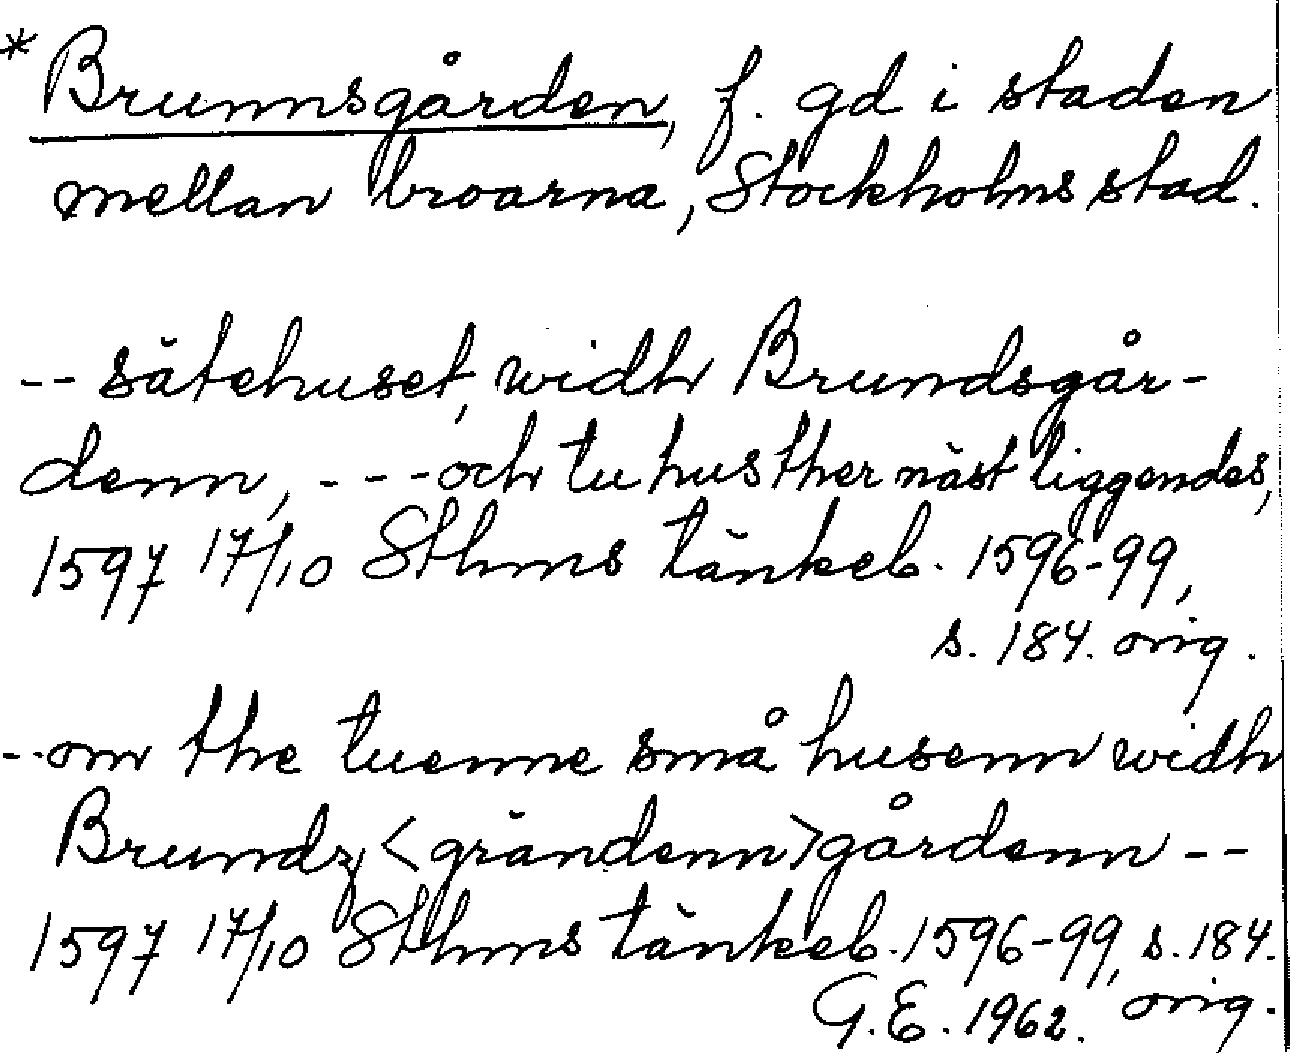 *Brunnsgården, f. gd i staden
mellan broarna, Stockholms stad.
-- sätehuset, widh Brundsgår-
denn, - - - och tu hus ther näst liggendes,
1597 17/10 Sthms tänkeb. 1596-99,
s. 184. orig.
-- om the tuenne små husenn widh
Brundz <grändenn> gårdenn --
1597 17/10 Sthms tänkeb. 1596-99, s. 184.
G.E. 1962. orig.